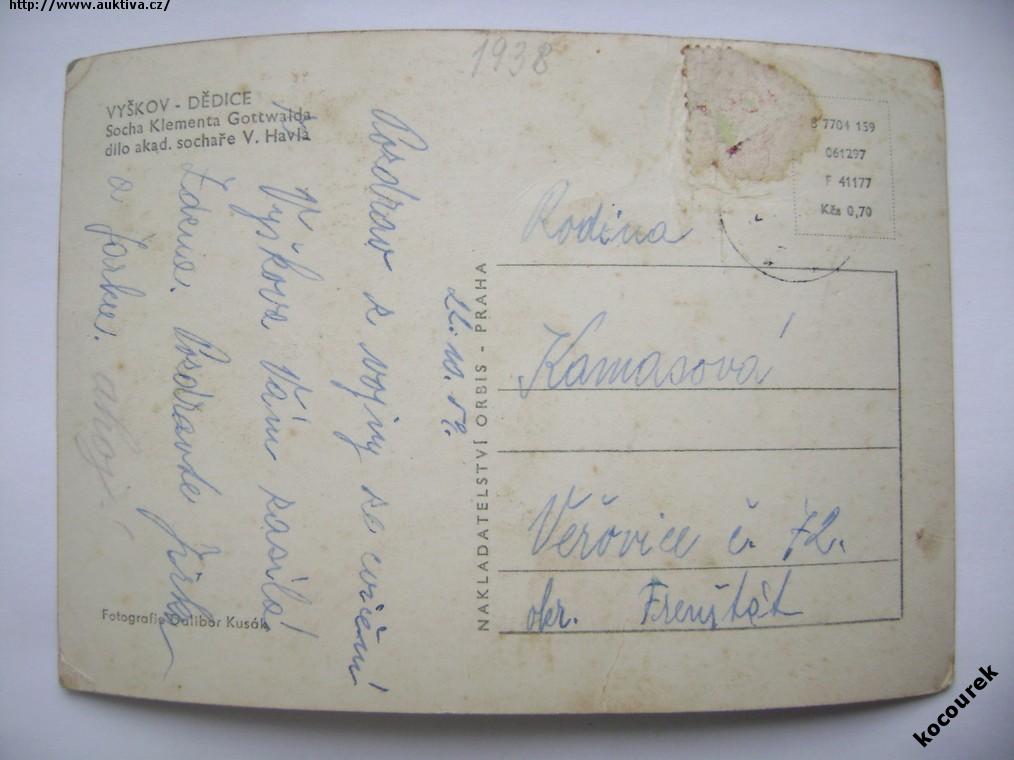 http://www.auktiva.cz/
1938
VYŠKOV - DĚDICE
Socha Klementa Gottwalda
dílo akad. sochaře V. Havla
Pozdrav z vojny ze cvičení
Vyškova Vám zasílá
Zdena. Pozdravte Jirku
a Jarku. ahoj.
Fotografie Dalibor Kusák
NAKLADATELSTVÍ ORBIS - PRAHA
B 7704 159
061297
F 41177
Kčs 0,70
Rodina
Kamasová
Veřovice č. 72.
okr. Frenštát
kocourek